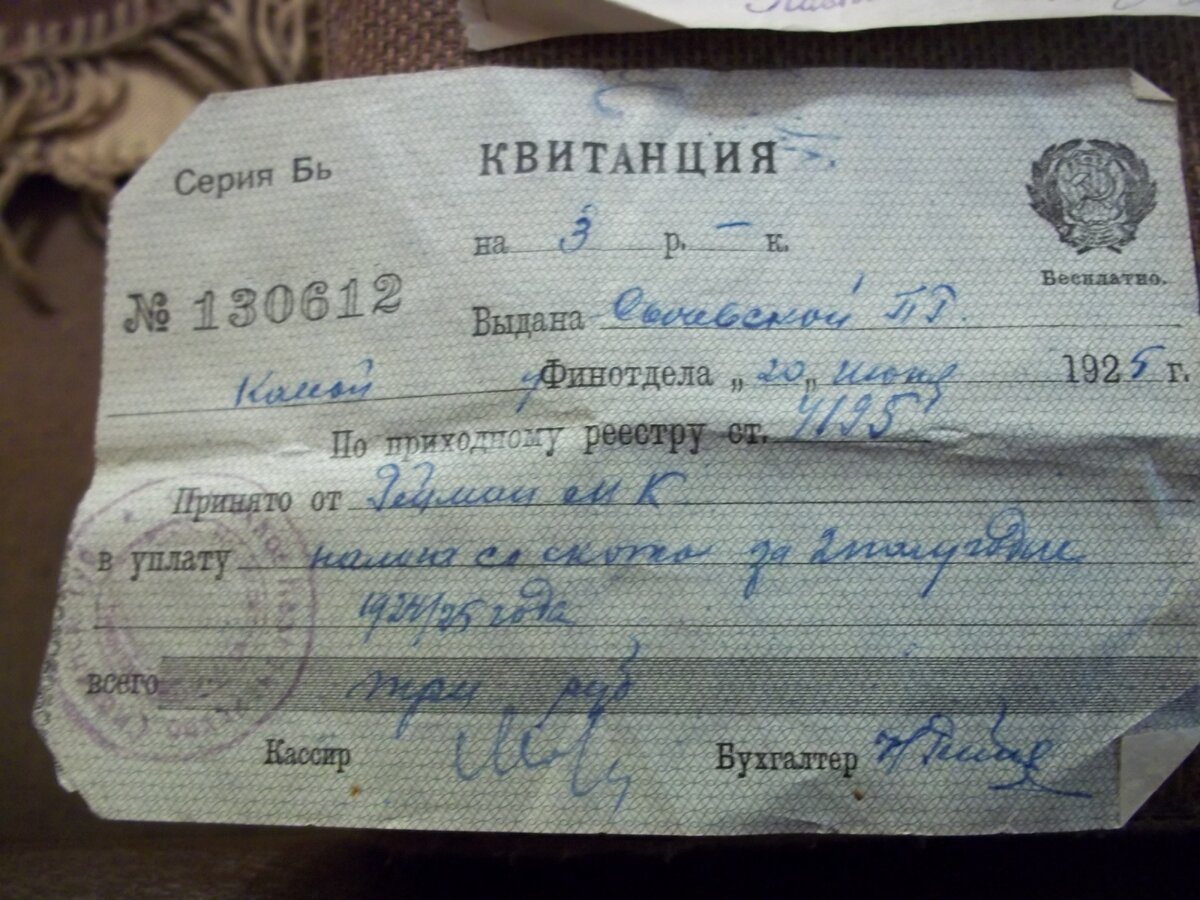 Серия Бь
КВИТАНЦИЯ
на 3 р. — к.
Бесплатно.
№ 130612
Выдана Сычевской П.Г.
Касой У Финотдела „20„ июня 1925 г.
По приходному реестру ст. 4195
Принято от
в уплату со скота за 2 полугодие
1924/25 года
всего три руб
Кассир
Бухгалтер